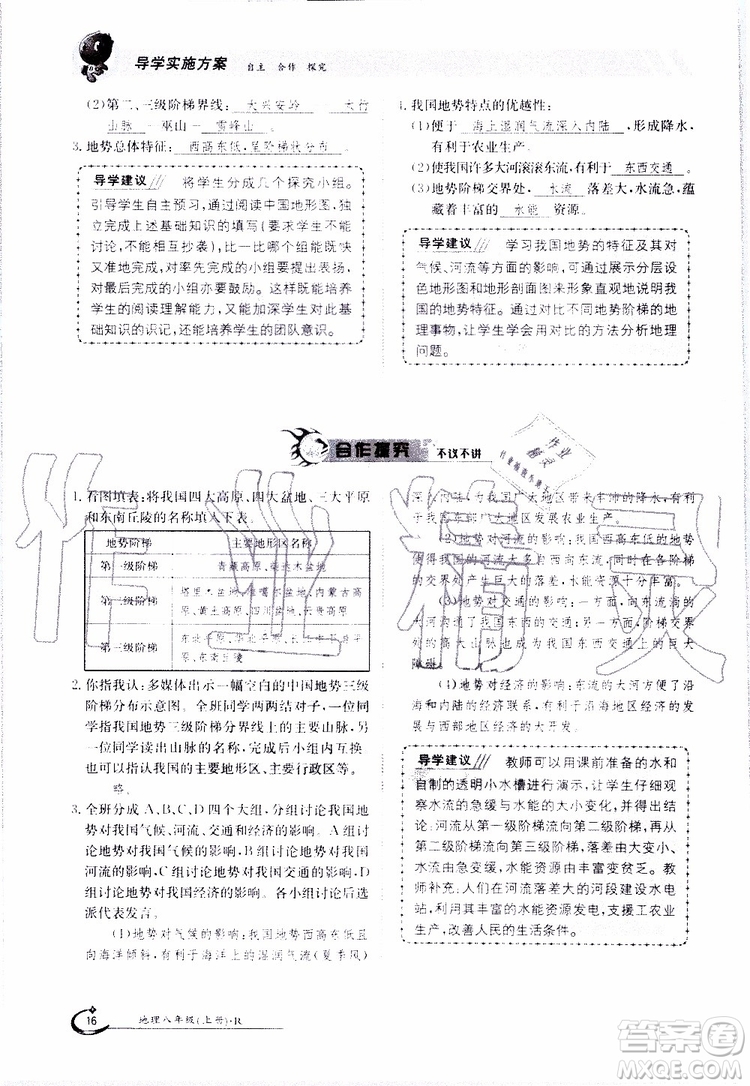 导学实施方案 自主 合作 探究
(2)第二、三级阶梯界线：大兴安岭—太行
山脉—巫山—雪峰山。
3. 地势总体特征：西高东低，呈阶梯状分布。
导学建议 将学生分成几个探究小组。
引导学生自主预习，通过阅读中国地形图，独
立完成上述基础知识的填写(要求学生不能
讨论，不能相互抄袭)，比一比哪个小组能既快
又准地完成，对率先完成的小组进行表扬，对
对最后完成的小组亦要鼓励。这样既能培养
学生的阅读理解能力，又能加深学生对地理
基础知识的识记，还能培养学生的团队意识。
4. 我国地势特点的优越性：
(1)便于海上湿润气流深入内陆，形成降水，
有利于农业生产。
(2)使我国许多大河滚滚东流，有利于东西交通。
(3)地势阶梯交界处，水流落差大，水流急，蕴
藏着丰富的水能资源。
导学建议 学习我国地势的特征及其对
气候、河流等方面的影响，可通过展示分层设
色地形图和地形剖面图来形象直观地说明我
国的地势特征。通过对比不同地势阶梯的地
理事物，让学生学会用对比的方法分析地理
问题。
合作探究 不议不讲
1. 看图填表：将我国四大高原、四大盆地、三大平原
和东南丘陵的名称填入下表。
地势阶梯 主要地形区名称
第一级阶梯 青藏高原、柴达木盆地
第二级阶梯 塔里木盆地、准噶尔盆地、内蒙古高
原、黄土高原、四川盆地、云贵高原
第三级阶梯 东北平原、华北平原、长江中下游平
原、东南丘陵
2. 你指我认：多媒体出示一幅空白的中国地势三级
阶梯分布示意图。全班同学两两结对，一位同
学指出中国地势三级阶梯分界线上的主要山脉，
另一位同学读出山脉的名称，完成后小组内互换
并扩展到相应的主要地形区、主要行政区等。
略。
3. 全班分成A、B、C、D四个大组，分组讨论我国地
势对我国气候、河流、交通和经济的影响。A组讨
论地势对我国气候的影响，B组讨论地势对我国
河流的影响，C组讨论地势对我国交通的影响，D
组讨论地势对我国经济的影响。各小组讨论后选
派代表发言。
(1)地势对气候的影响：我国地势西高东低且
向海洋倾斜，有利于海洋上的湿润气流(夏季风)
深入内地，给我国东部广大地区带来丰沛的降水，有
利于我国东部广大地区发展农业生产。
(2)地势对河流的影响：我国地势西高东低，使
我国的河流大多自西向东流，在各阶梯
的交界处产生巨大的落差，水能丰富。
(3)地势对交通的影响：一方面，向东流的
大河沟通了我国的东西交通；另一方面，阶梯交界
处的高大山脉成为我国东西交通的巨大
障碍。
(4)地势对经济的影响：东流的大河方便了沿
海和内地的经济联系，有利于沿海地区经济的发展
与西部地区经济的开发。
导学建议 教师可以用课前准备的水和
自制的透明小水槽进行演示，让学生仔细观
察水流的急缓与水能的大小变化，并得出结
论：河流从第一级阶梯流向第二级阶梯，从第
二级阶梯流向第三级阶梯时，水流落差增大，
水流由急变缓，水能资源由丰富变贫乏。教
师补充：人们在河流落差大的河段建设水电
站，利用其丰富的水能资源发电，支援工农业
生产，改善人民的生活。
16 地理八年级(上册)·R
作业精灵
答案圈